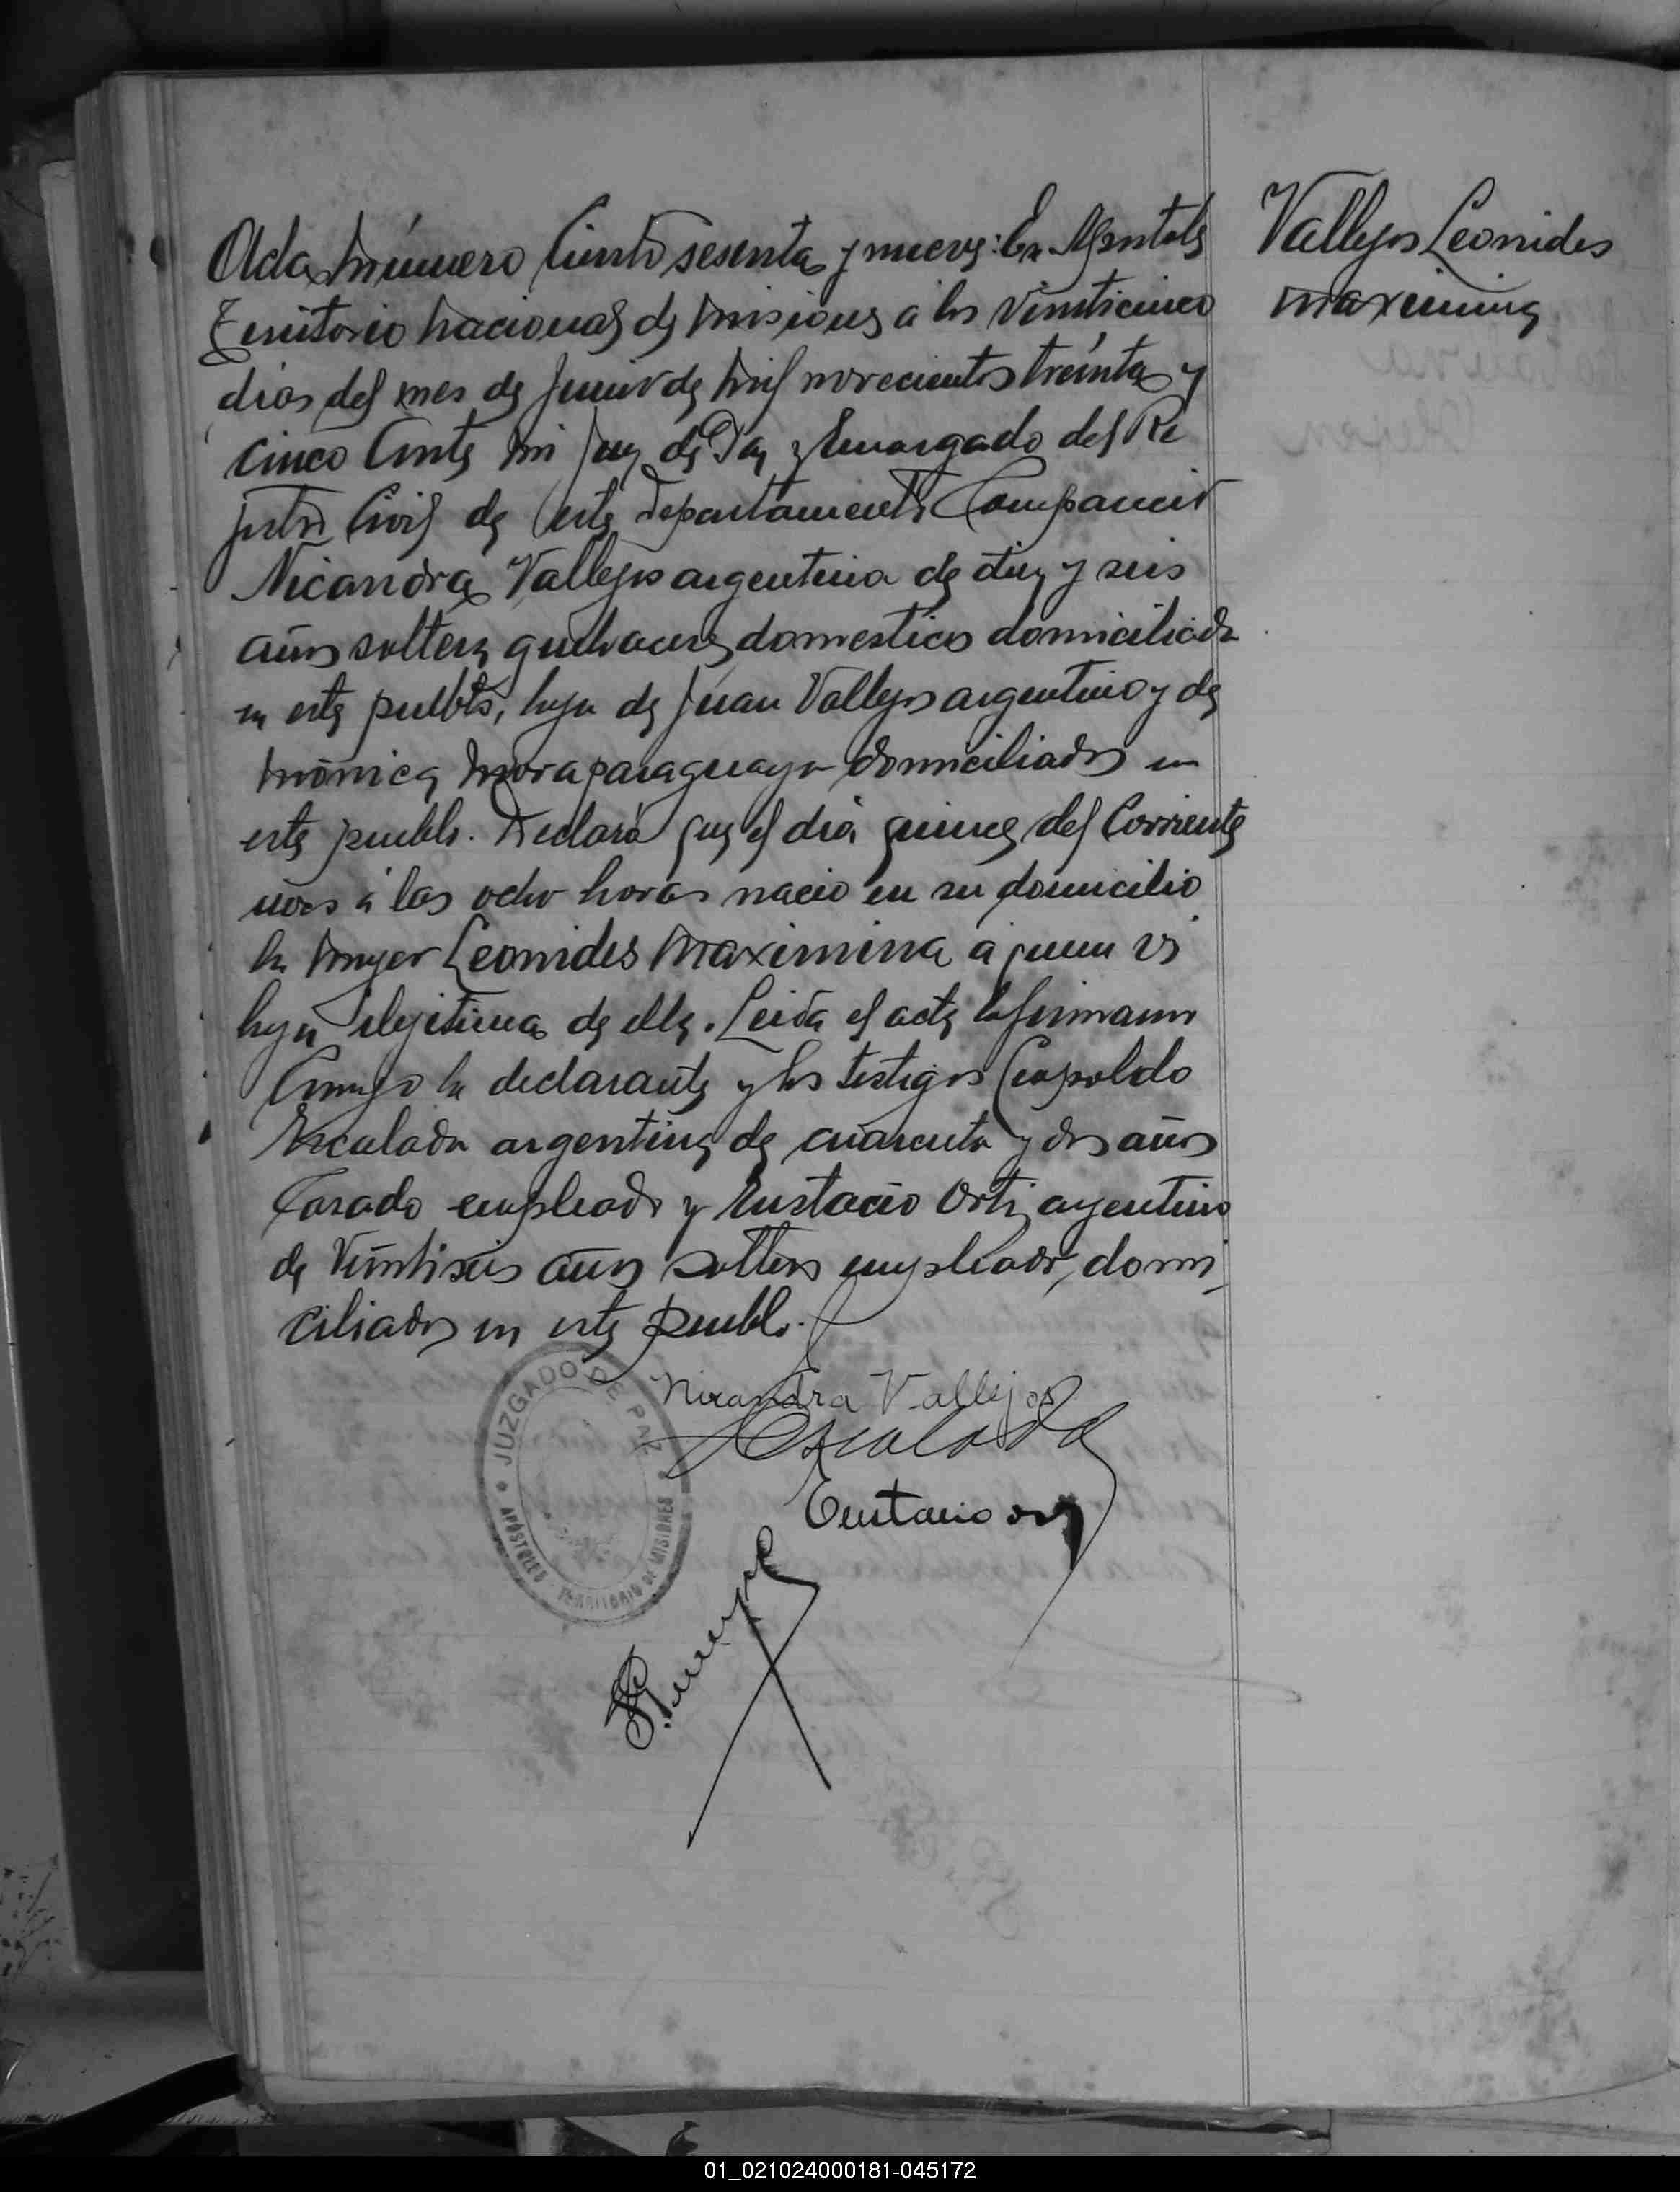 Acta número Ciento sesenta y nueve: En Apostoles
Territorio Nacional de Misiones a los Veinticinco
dias del mes de Junio de Mil novecientos treinta y
cinco Ante mi Juez de Paz y Encargado del Re
jistro Civil de este Departamento Comparecio
Nicandra Vallejos argentina de diez y seis
años soltera quehaceres domesticos domiciliada
en este pueblo, hija de Juan Vallejos argentino y de
Mónica Mora paraguaya domiciliados en
este pueblo. Declaró que el dia quince del Corriente
mes á las ocho horas nacio en su domicilio
la Mujer Leonides Maximina á quien vi
hija ilegitima de ella. Leida el acta la firmaron
Conmigo la declarante y los testigos Leopoldo
Escalada argentino de cuarenta y dos años
Casado empleado y Eustacio Ortiz argentino
de Veintiseis años soltero empleado, domi
ciliados en este pueblo.
Vallejos Leonides
Maximina
Nicandra Vallejos
Escalada
Eustacio
JUZGADO DE PAZ
APÓSTOLES - TERRITORIO DE MISIONES
01_021024000181-045172